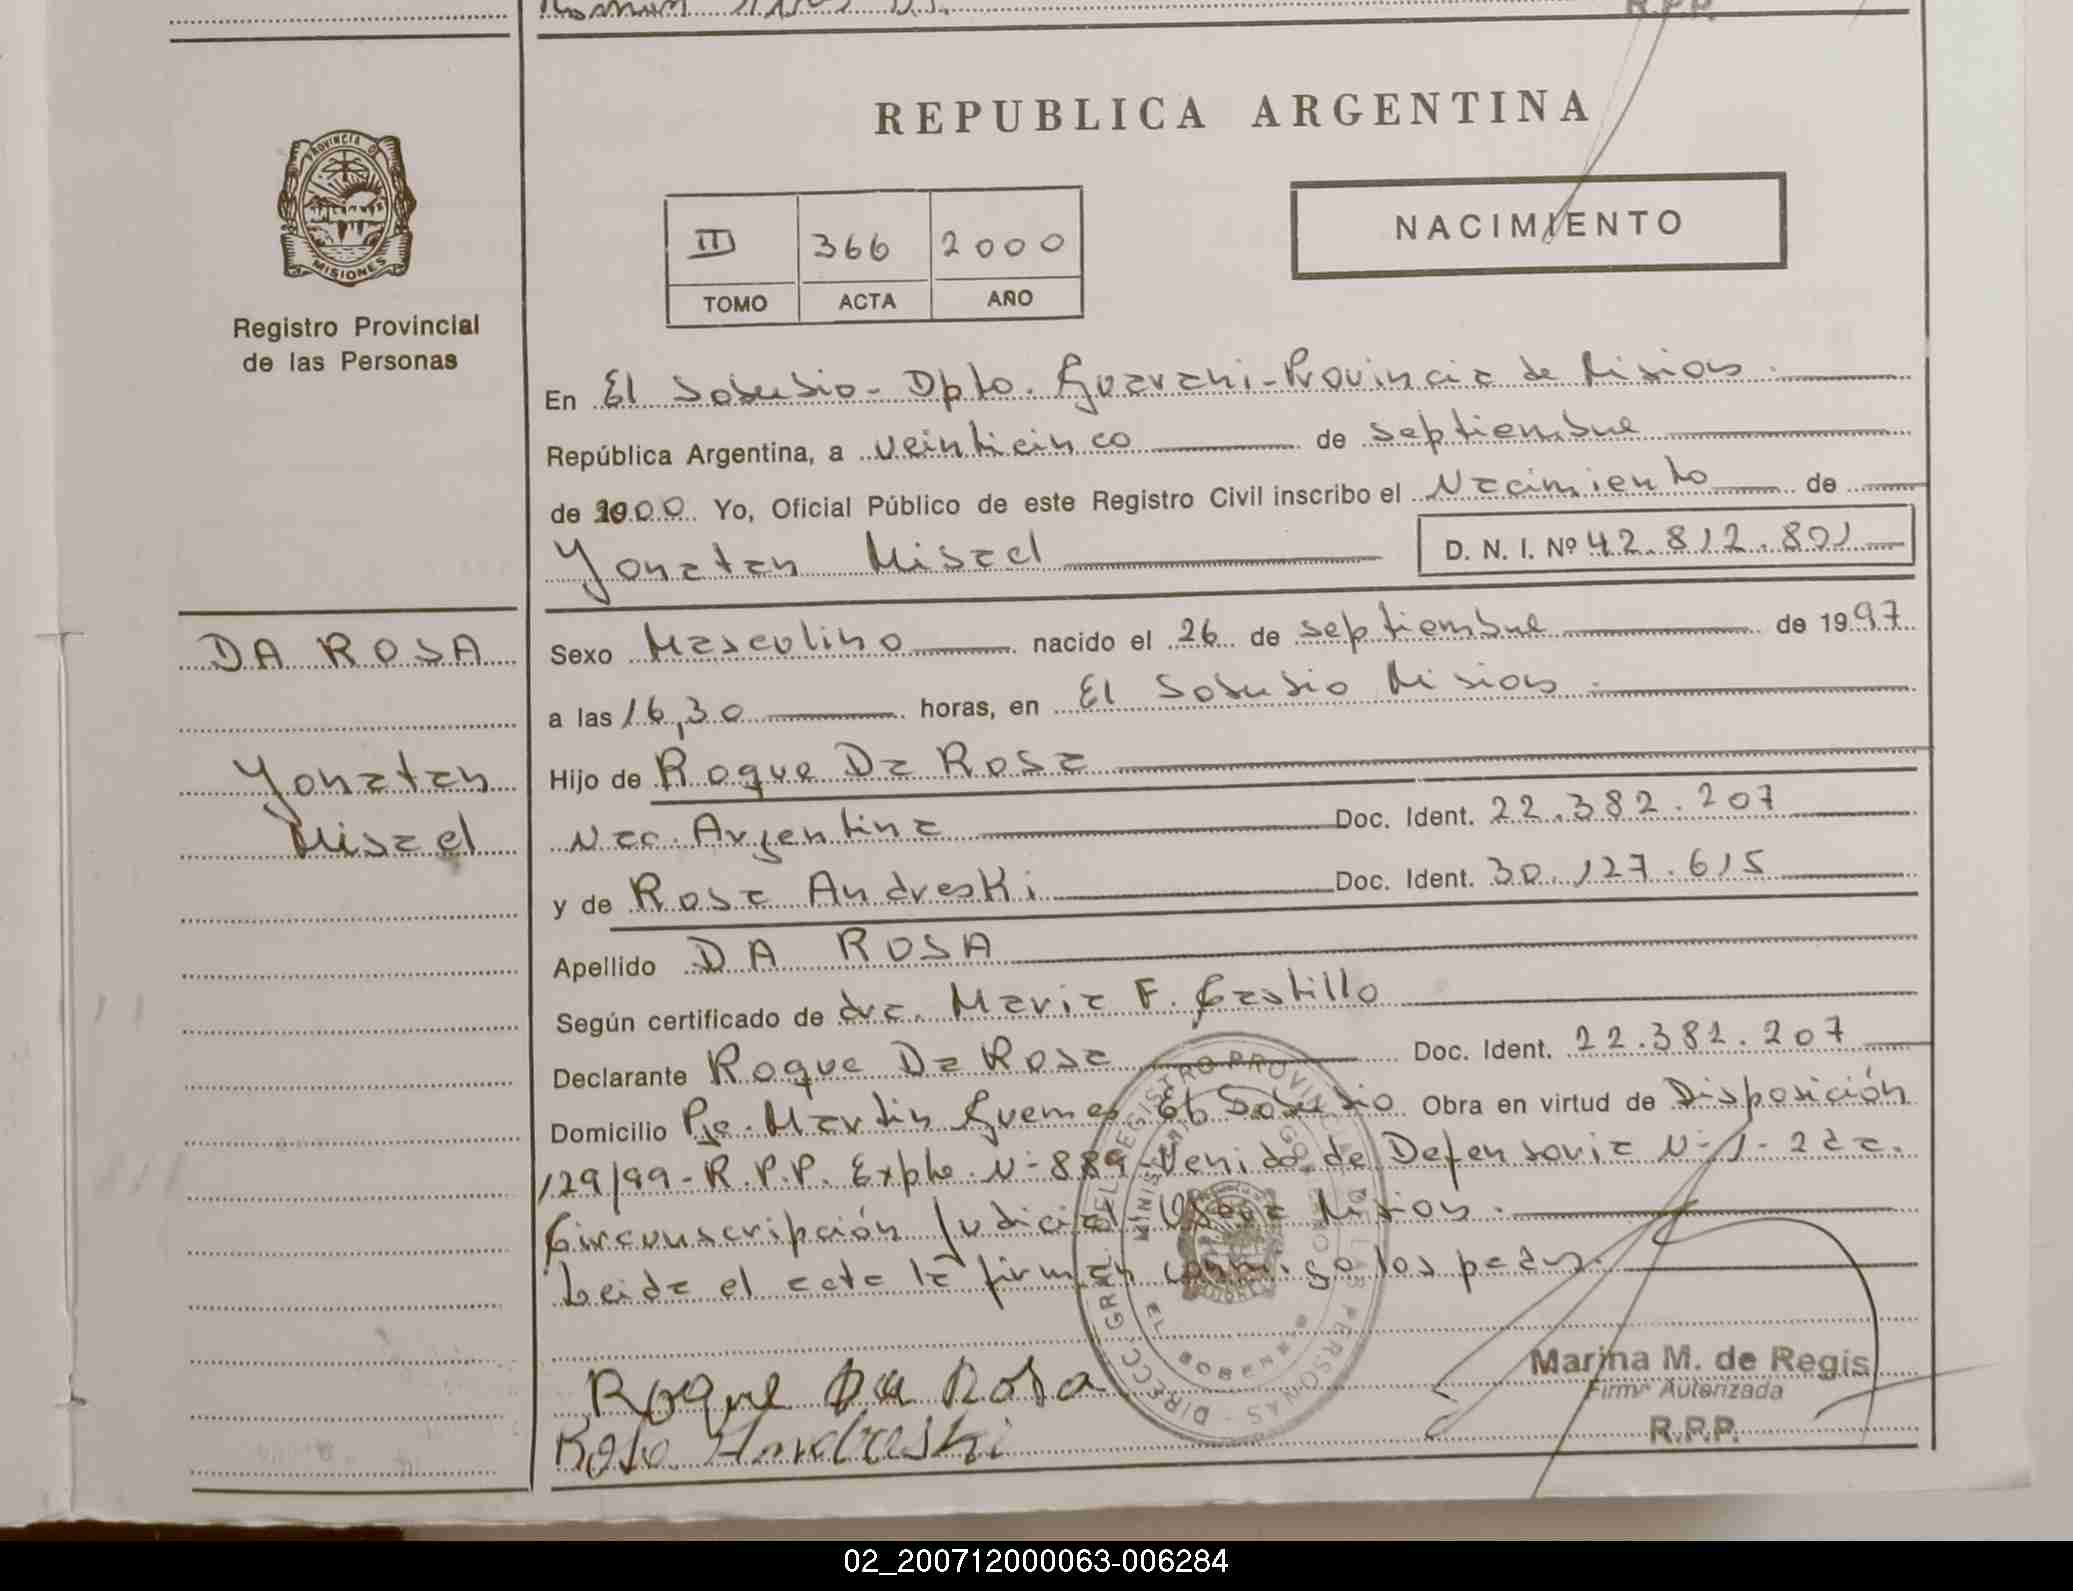 REPUBLICA ARGENTINA
PROVINCIA D
MISIONES
Registro Provincial
de las Personas
II 366 2000
TOMO ACTA AÑO
NACIMIENTO
En El Soberbio - Dpto. Guarani - Provincia de Misiones
República Argentina, a veinticinco de septiembre
de 2000 Yo, Oficial Público de este Registro Civil inscribo el Nacimiento de
Yonatan Misael D. N. I. Nº 42.812.801
DA ROSA
Yonatan
Misael
Sexo Masculino nacido el 26 de septiembre de 1997
a las 16,30 horas, en El Soberbio Misiones.
Hijo de Roque Da Rosa
Nac. Argentina Doc. Ident. 22.382.207
y de Rosa Andreski Doc. Ident. 30.127.615
Apellido DA ROSA
Según certificado de dra. Maria F. Castillo
Declarante Roque Da Rosa Doc. Ident. 22.382.207
Domicilio Pje. Martin Guemes El Soberbio Obra en virtud de Disposición
129/99 - R.P.P. Expte. Nº 889 Venido de Defensoria Nº 1 - 2da.
Circunscripción Judicial Obera Misiones.
Leida el acta la firman conmigo los padres.
DIRECC. GRAL. DEL REGISTRO PROVINCIAL DE LAS PERSONAS
Roque Da Rosa
Rosa Andreski
Marina M. de Regis
Firma Autorizada
R.P.P.
02_200712000063-006284